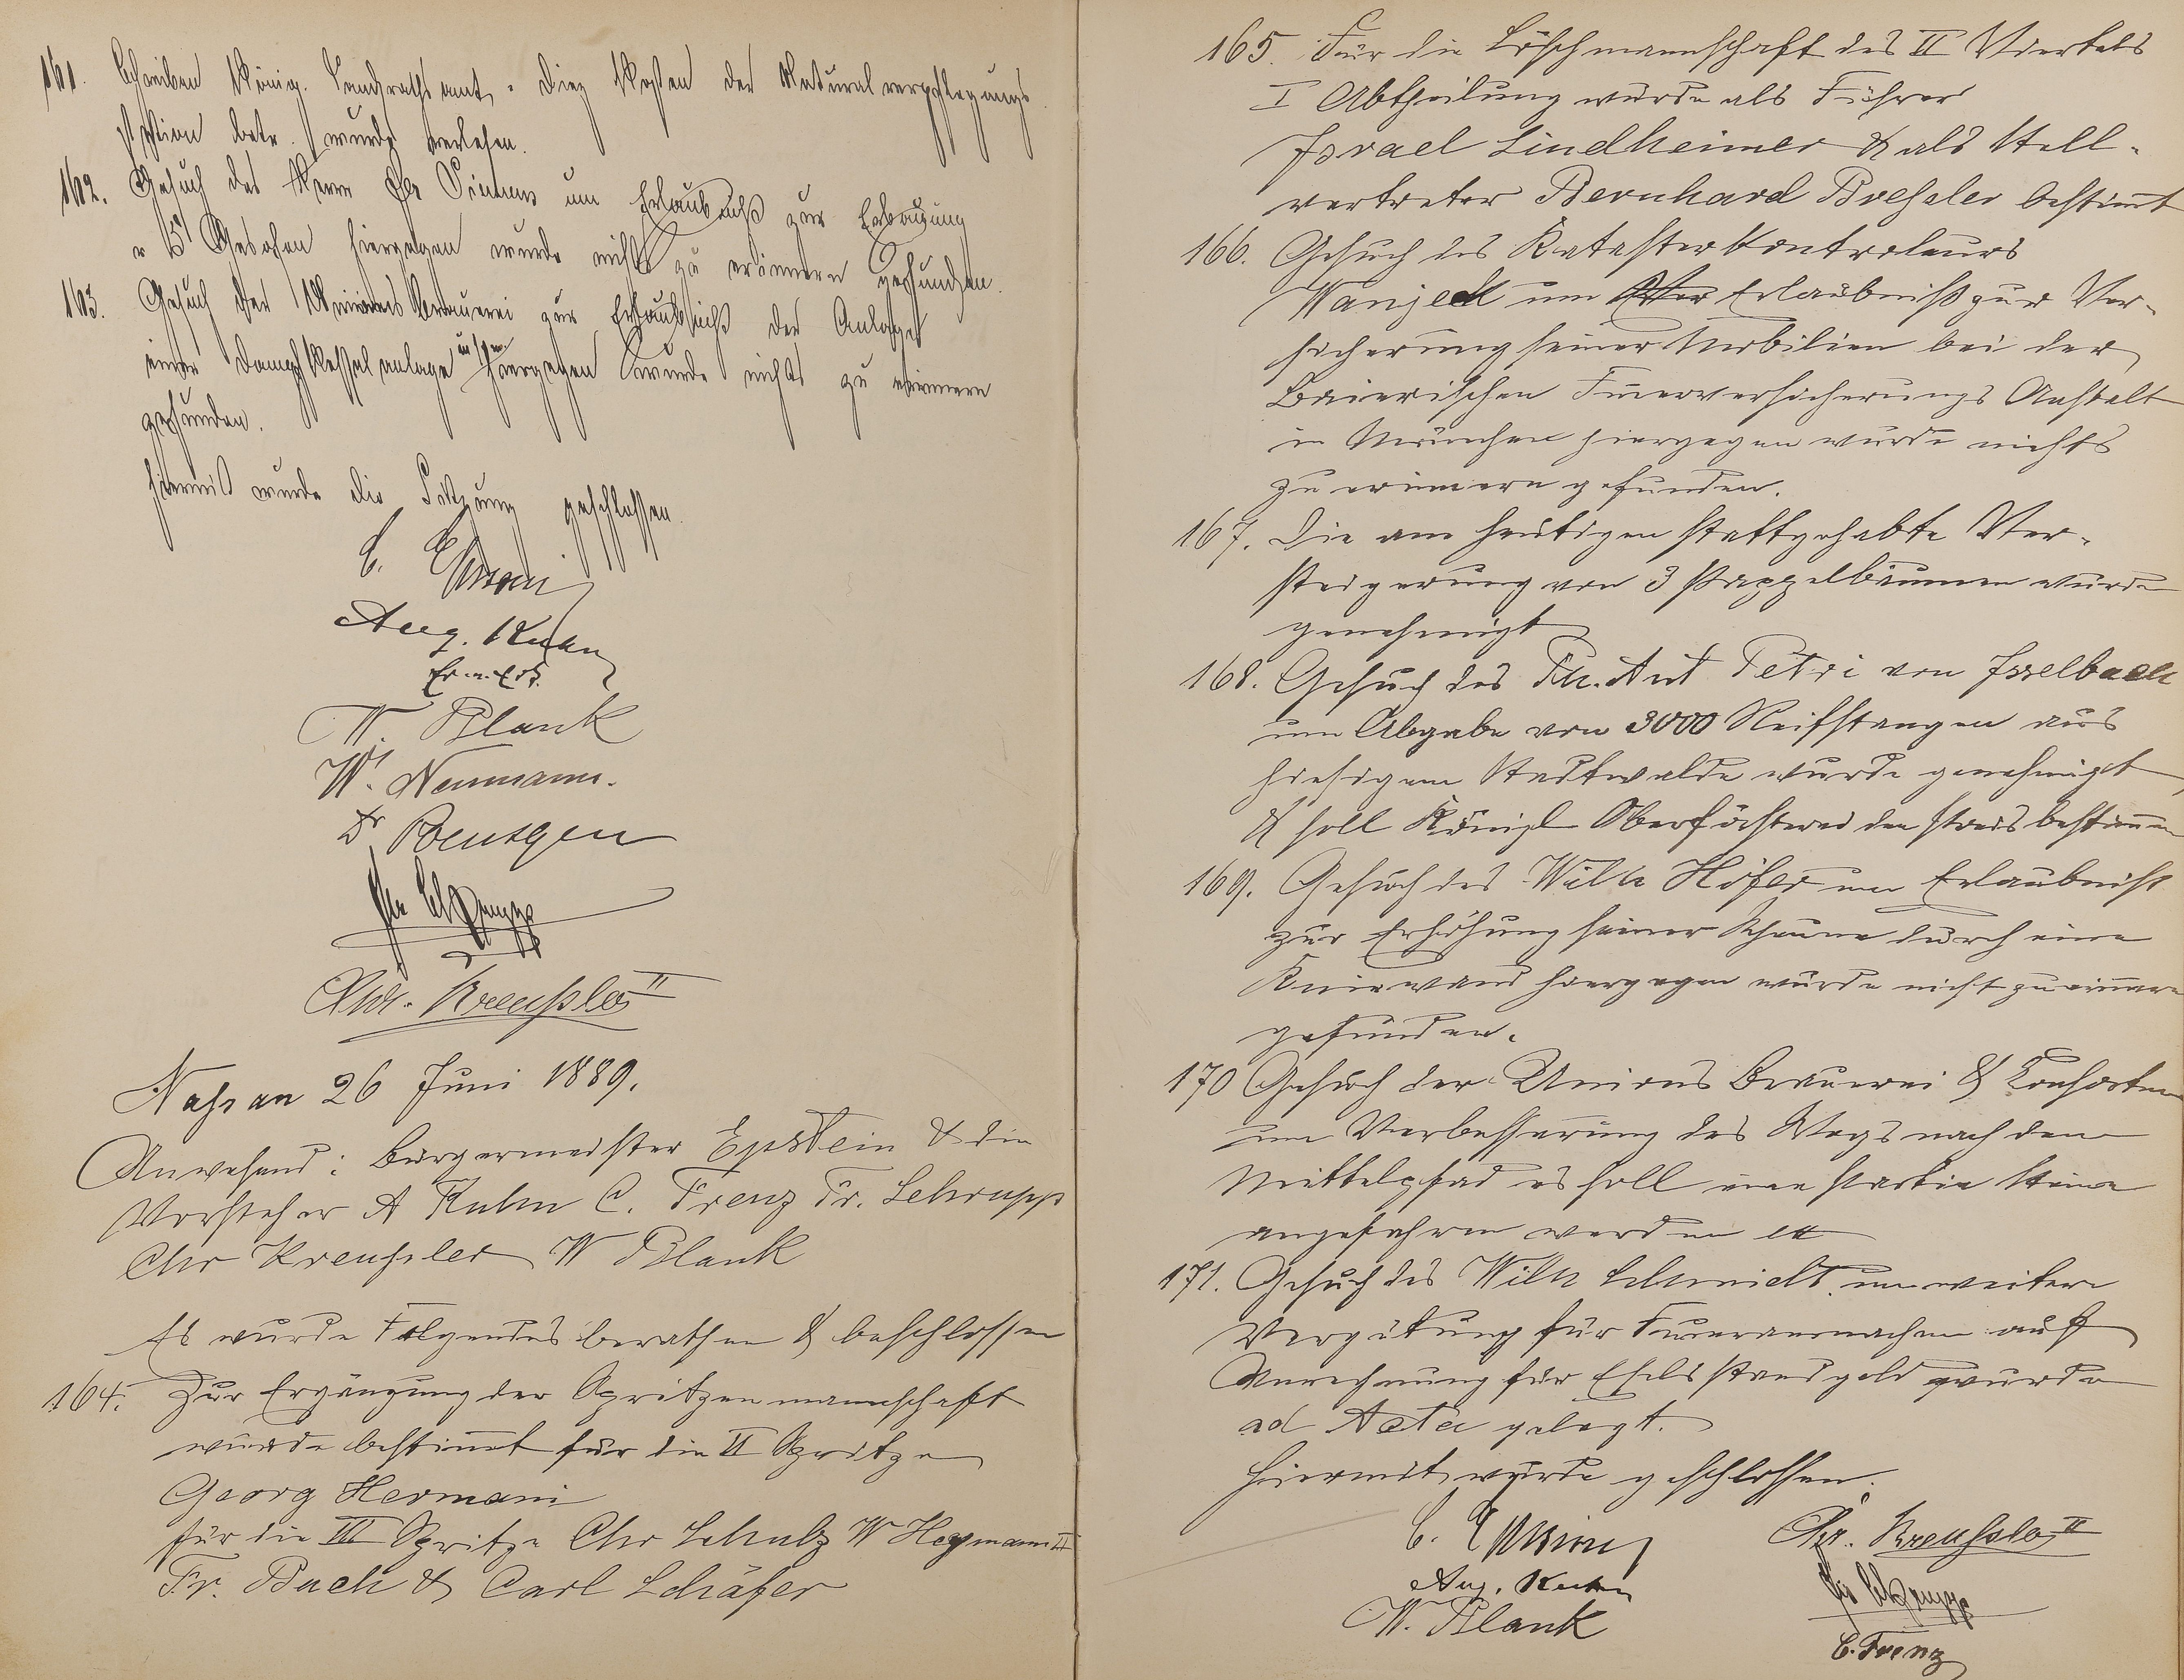 161. Schreiben König. Landrathsamt, Diez Kosten der Naturalverpflegungs-
station betr. wurde verlesen.
162. Gesuch des Herrn um Erlaubniß zur Erbauung
hiergegen wurde nichts zu erinnern gefunden.
163. Gesuch der Unions Brauerei zur Erlaubniß der Anlage
einer Dampfkesselanlage hiergegen wurde nichts zu erinnern
gefunden.
Hiermit wurde die Sitzung geschlossen.
C. Epstein
Aug. Kuhn
W. Blank
W. Neumann.
Dr Roentgen
Fr Schrupp
Chr. Kreußler II
Nassau 26 Juni 1889.
Anwesend: Bürgermeister Epstein & die
Vorsteher A Kuhn C. Trenz Fr. Schrupp
Chr Kreußler W Blank
Es wurde Folgendes berathen & beschlossen
164. Zur Ergänzung der Spritzenmannschaft
wurde bestimt für die II Spritze
Georg Hermani
für die III Spritze Chr Schulz W Heymann II
Fr. Buch & Carl Schäfer
165. Für die Löschmannschaft des II Viertels
I Abtheilung wurde als Führer
Israel Lindheimer & als Stell-
vertreter Bernhard Breßler bestimt
166. Gesuch des Katasterkontroleurs
Wanjeck um Erlaubniß zur Ver-
sicherung seiner Mobilien bei der
Baierischen Feuerversicherungs Anstalt
in München hiergegen wurde nichts
zu erinnern gefunden.
167. Die am heutigen stattgehabte Ver-
steigerung von 3 Pappelbäumen wurde
genehmigt
168. Gesuch des Ph. Ant Petri von Isselbach
um Abgabe von 3000 Reifstangen aus
hiesigem Stadtwalde wurde genehmigt
& soll Königl Oberförsterei den Preis bestimen
169. Gesuch des Wilh Höfer um Erlaubniß
zur Erhöhung seiner Scheune durch eine
Kniewand hiergegen wurde nicht zu erinern
gefunden.
170 Gesuch der Unions Brauerei & Consorten
um Verbesserung des Wegs nach dem
Mittelpfad es soll eine Parthie Steine
angefahren werden
171. Gesuch des Wilh Schmidt um weitere
Vergütung für Feueranmachen auf
Anrechnung für Standgeld wurde
ad Acta gelegt.
Hiermit wurde geschlossen.
C. Epstein Chr. Kreußler II
Aug. Kuhn Fr Schrupp
W. Blank C. Trenz